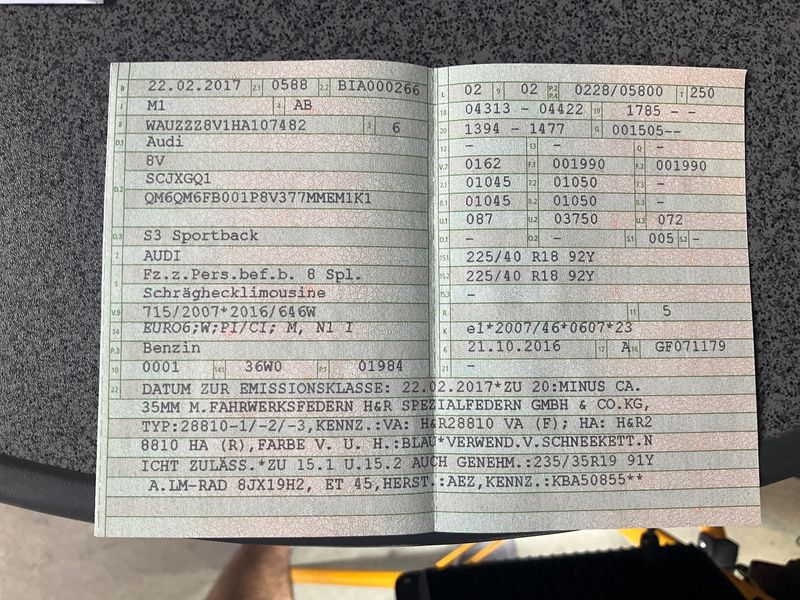 B 22.02.2017 2.1 0588 2.2 BIA000266
J M1 4 AB
E WAUZZZ8V1HA107482 3 6
D.1 Audi
8V
D.2 SCJXGQ1
QM6QM6FB001P8V377MMEM1K1
D.3 S3 Sportback
2 AUDI
5 Fz.z.Pers.bef.b. 8 Spl.
Schräghecklimousine
V.9 715/2007*2016/646W
14 EURO6;W;PI/CI; M, N1 I
P.3 Benzin
10 0001 14.1 36W0 P.1 01984
L 02 9 02 P.2 P.4 0228/05800 T 250
18 04313 - 04422 19 1785 - -
20 1394 - 1477 G 001505--
12 - 13 - Q -
V.7 0162 F.1 001990 F.2 001990
7.1 01045 7.2 01050 7.3 -
8.1 01045 8.2 01050 8.3 -
U.1 087 U.2 03750 U.3 072
O.1 - O.2 - S.1 005 S.2 -
15.1 225/40 R18 92Y
15.2 225/40 R18 92Y
15.3 -
R 11 5
K e1*2007/46*0607*23
6 21.10.2016 17 A 16 GF071179
21 -
22 DATUM ZUR EMISSIONSKLASSE: 22.02.2017*ZU 20:MINUS CA.
35MM M.FAHRWERKSFEDERN H&R SPEZIALFEDERN GMBH & CO.KG,
TYP:28810-1/-2/-3,KENNZ.:VA: H&R28810 VA (F); HA: H&R2
8810 HA (R),FARBE V. U. H.:BLAU*VERWEND.V.SCHNEEKETT.N
ICHT ZULÄSS.*ZU 15.1 U.15.2 AUCH GENEHM.:235/35R19 91Y
A.LM-RAD 8JX19H2, ET 45,HERST.:AEZ,KENNZ.:KBA50855**